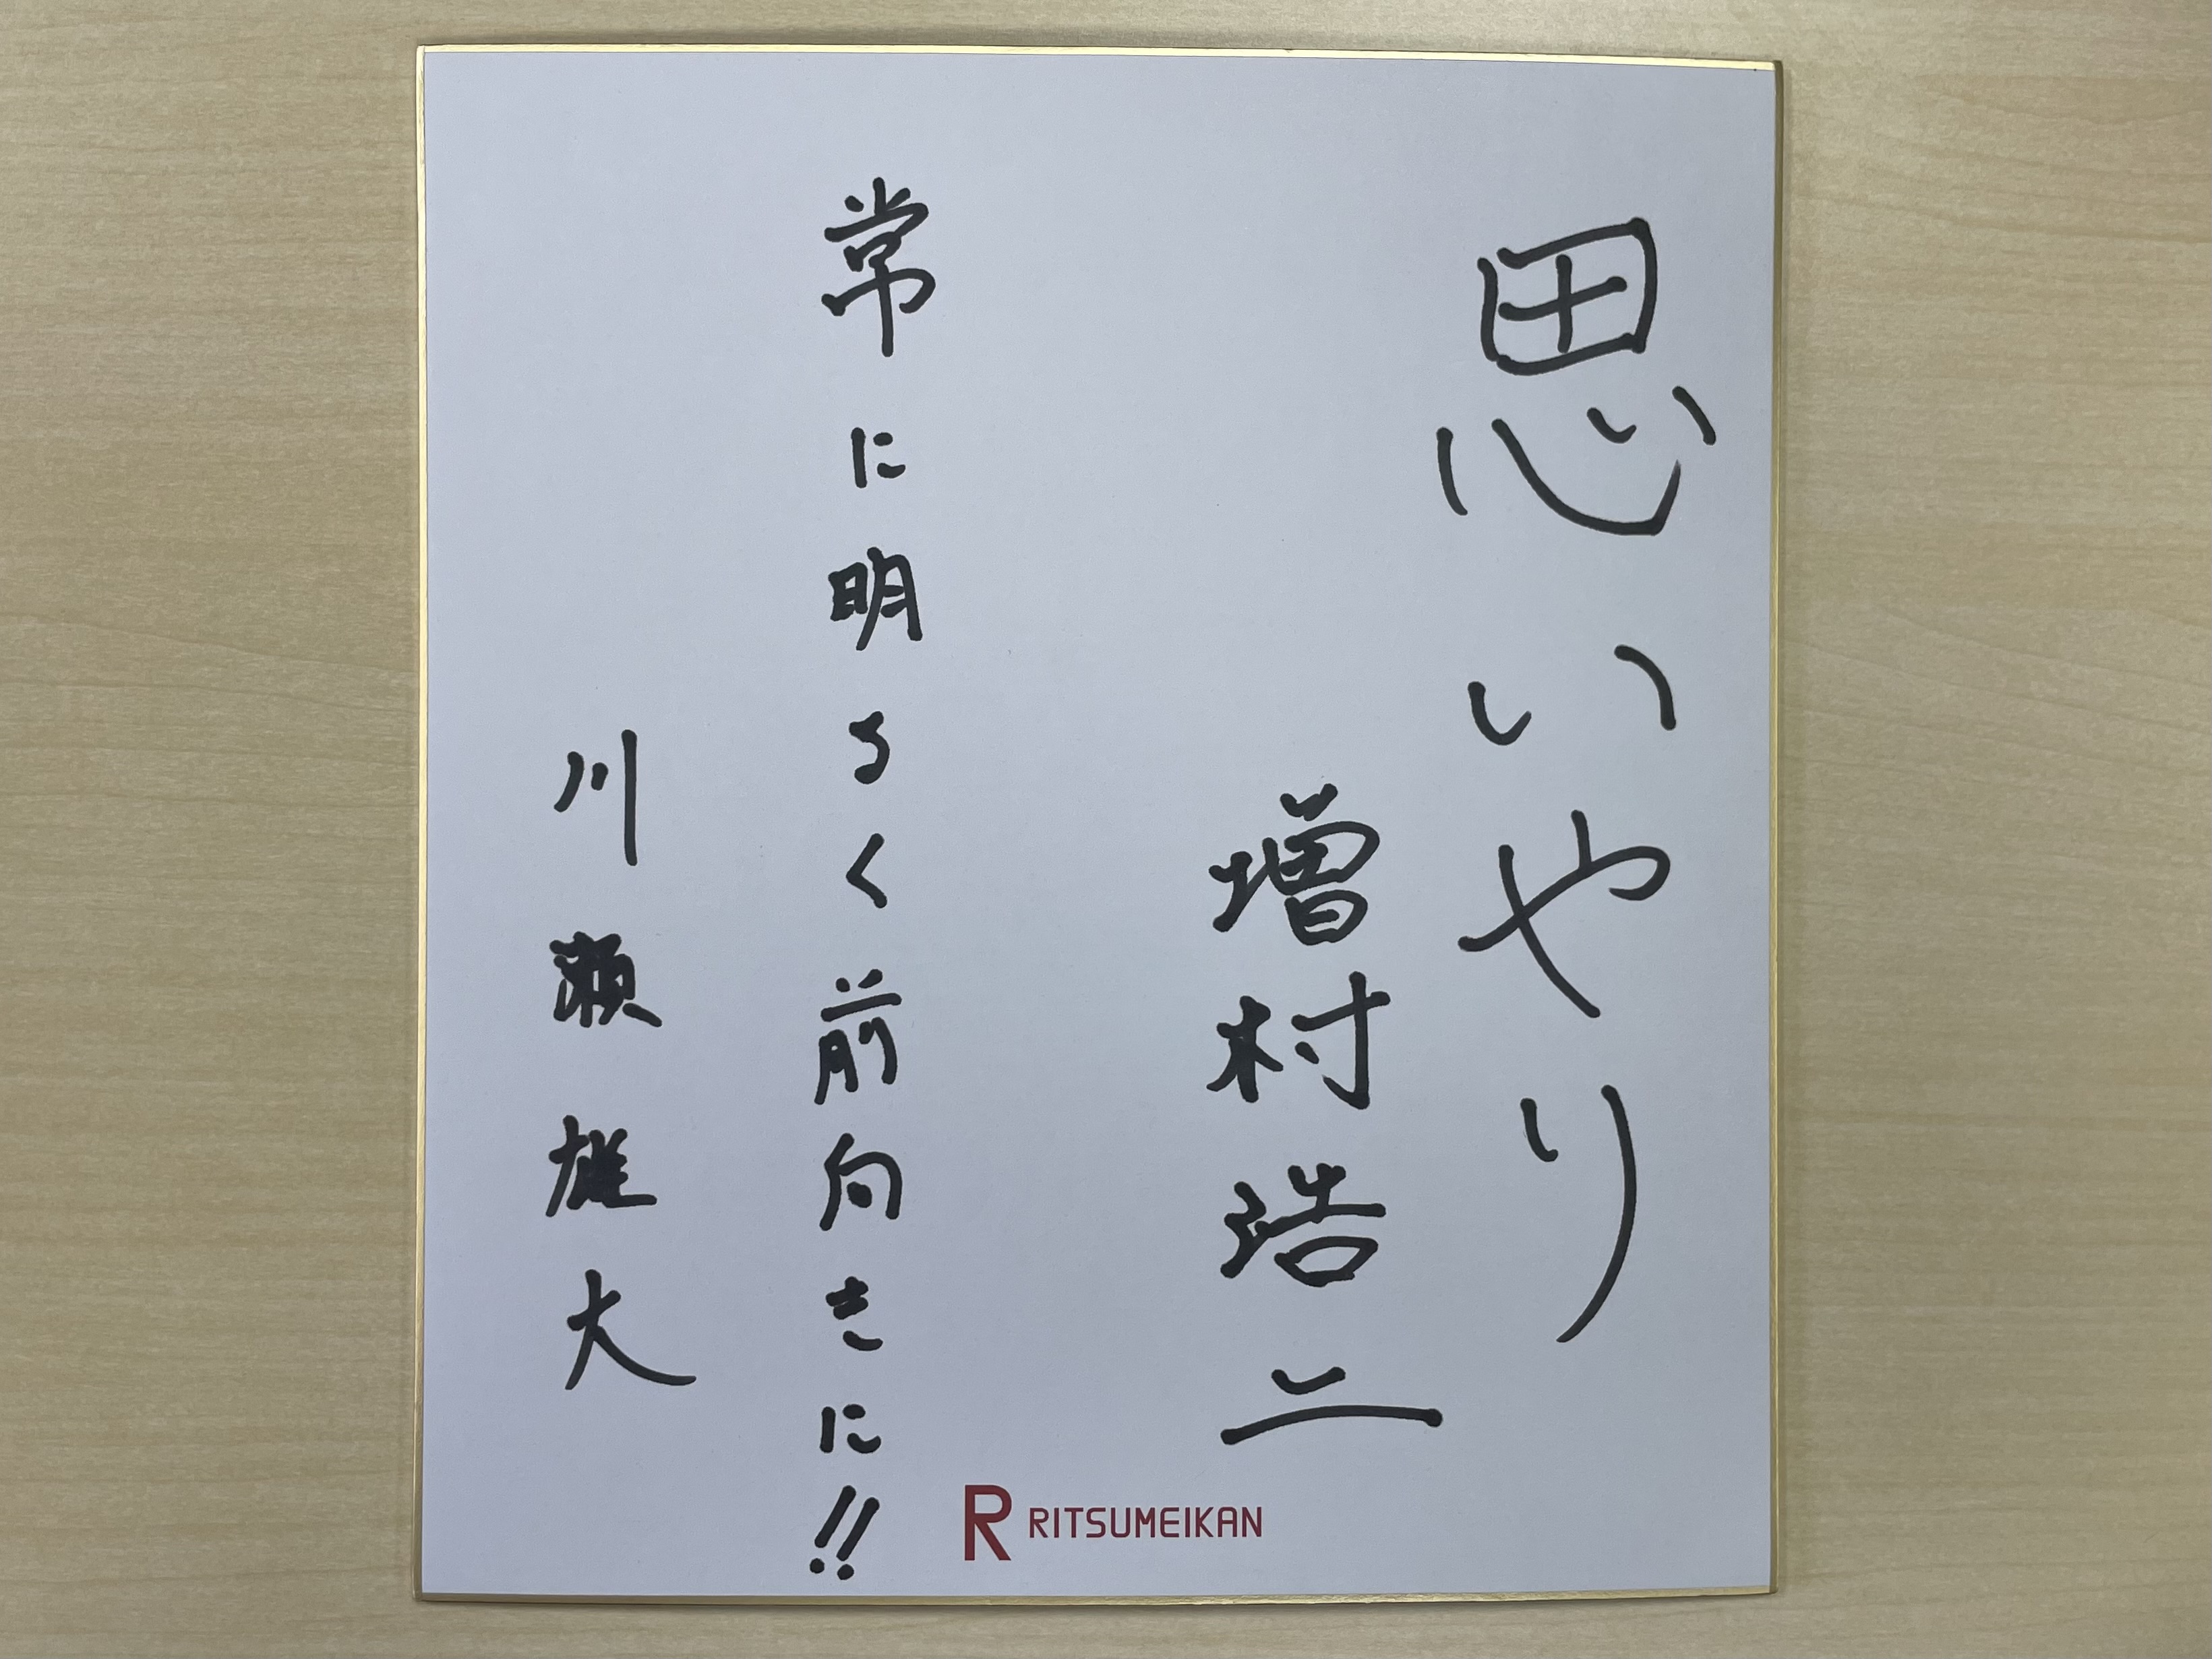 思いやり
増村浩二
常に明るく前向きに!!
川瀬雄大
R RITSUMEIKAN